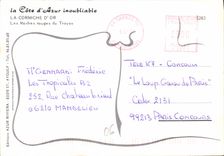 La Côte d'Azur inoubliable
LA CORNICHE D'OR
Les Roches rouges du Trayas
Mr GERMAIN Frédéric
Les Tropicales B2
252 Rue Chateaubriand
06210 MANDELIEU
TELE K7 - Concours
"Le Loup Garou de Paris"
Cedex 2151
99213 PARIS CONCOURS